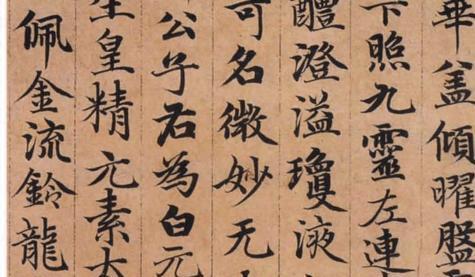 華盖傾曜盤
下照九靈左連
醴澄溢瓊液
可名微妙无
公子右為白元
皇精元素
佩金流鈴龍